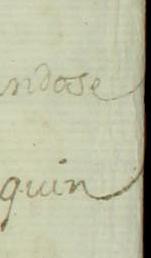 ndose
quin